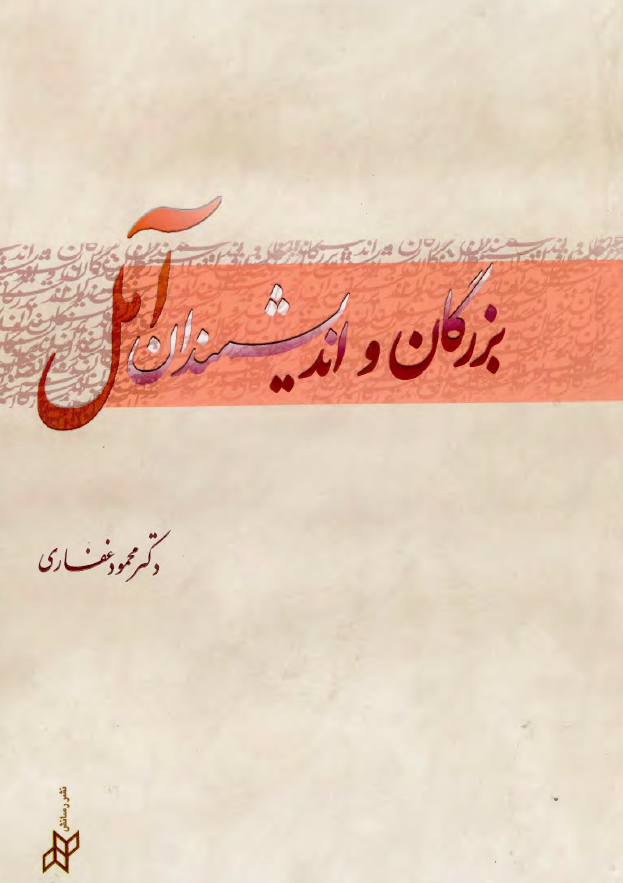 بزرگان و اندیشمندان آمل
دکتر محمود غفاری
نشر رسانش